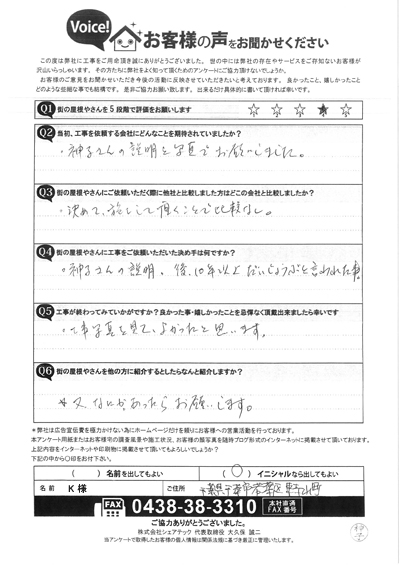 Voice!
お客様の声をお聞かせください
この度は弊社に工事をご用命頂き誠にありがとうございました。世の中には弊社の存在やサービスをご存知ないお客様が
沢山いらっしゃいます。その方たちに弊社をよく知って頂くためのアンケートにご協力頂けないでしょうか。
お客様のご意見をお聞かせいただき今後の活動に反映させていただきたいと考えております。良かったこと、嬉しかったこと
どのような些細な事でも結構です。是非ご協力お願い致します。出来るだけ具体的に書いて頂ければ幸いです。
Q1 街の屋根やさんを5段階で評価をお願いします ☆ ☆ ☆ ★ ☆
Q2 当初、工事を依頼する会社にどんなことを期待されていましたか?
・神子さんの説明と写真でお願いしました。
Q3 街の屋根やさんにご依頼いただく際に他社と比較しました方はどこの会社と比較しましたか?
・決めて、施して頂くことで比較なし。
Q4 街の屋根やさんに工事をご依頼いただいた決め手は何ですか?
・神子さんの説明。後、10年以上だいじょうぶと言われた事
Q5 工事が終わってみていかがですか?良かった事・嬉しかったことを忌憚なく頂戴出来ましたら幸いです
・工事写真を見て、よかったと思います。
Q6 街の屋根やさんを他の方に紹介するとしたらなんと紹介しますか?
又、なにかあったらお願いします。
*弊社は広告宣伝費を極力かけない為にホームページだけを頼りにお客様への営業活動を行っております。
本アンケート用紙またはお客様宅の調査風景や施工状況、お客様の顔写真を随時ブログ形式のインターネットに掲載させて頂いております。
上記内容をインターネットや印刷物に掲載させて頂いてもよろしいでしょうか?
下記の中から○印をお付下さい。
( )名前を出してもよい (○)イニシャルなら出してもよい
名前 K様 ご住所 千葉県千葉市若葉区
FAX 0438-38-3310 本社直通FAX番号
ご協力ありがとうございました。
株式会社シェアテック 代表取締役 大久保 誠二
当アンケートで取得したお客様の個人情報は関係法規に基づき厳正に管理いたします。